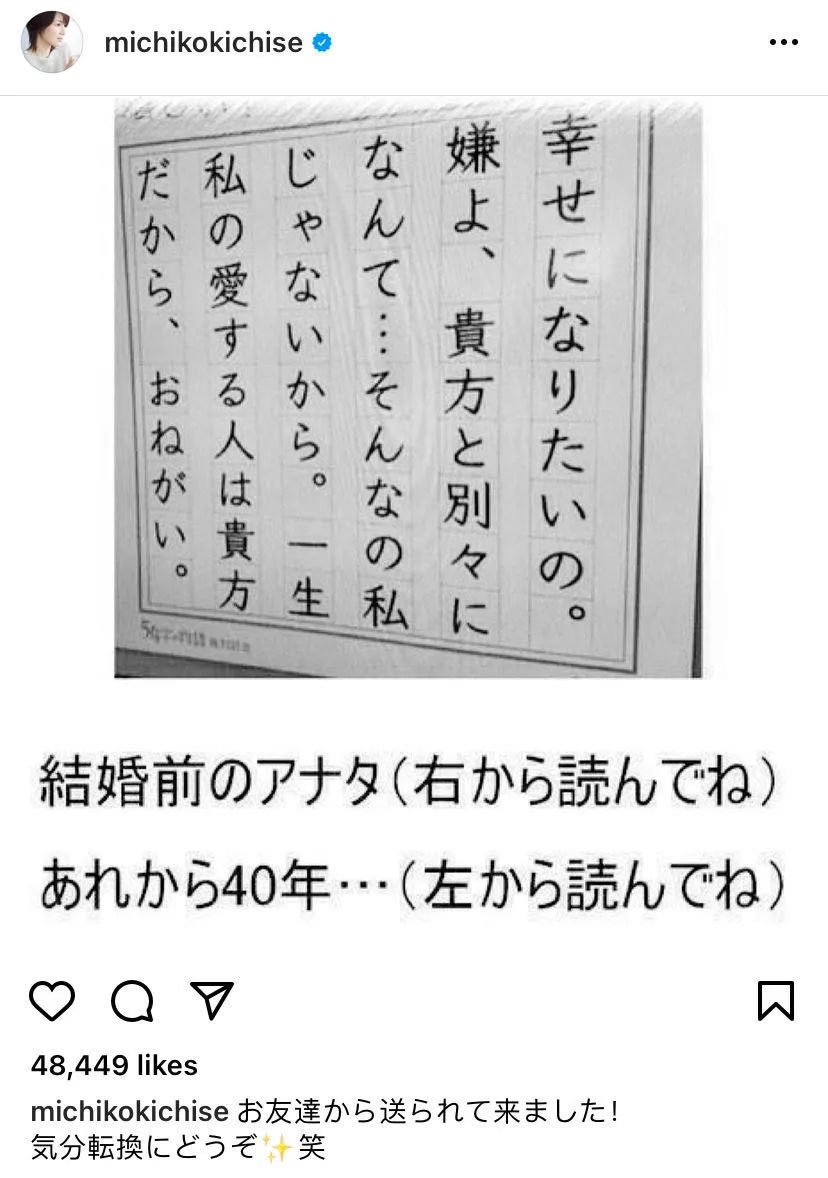 michikokichise
幸せになりたいの。
嫌よ、貴方と別々に
なんて…そんなの私
じゃないから。一生
私の愛する人は貴方
だから、おねがい。
結婚前のアナタ(右から読んでね)
あれから40年…(左から読んでね)
48,449 likes
michikokichise お友達から送られて来ました!
気分転換にどうぞ✨笑